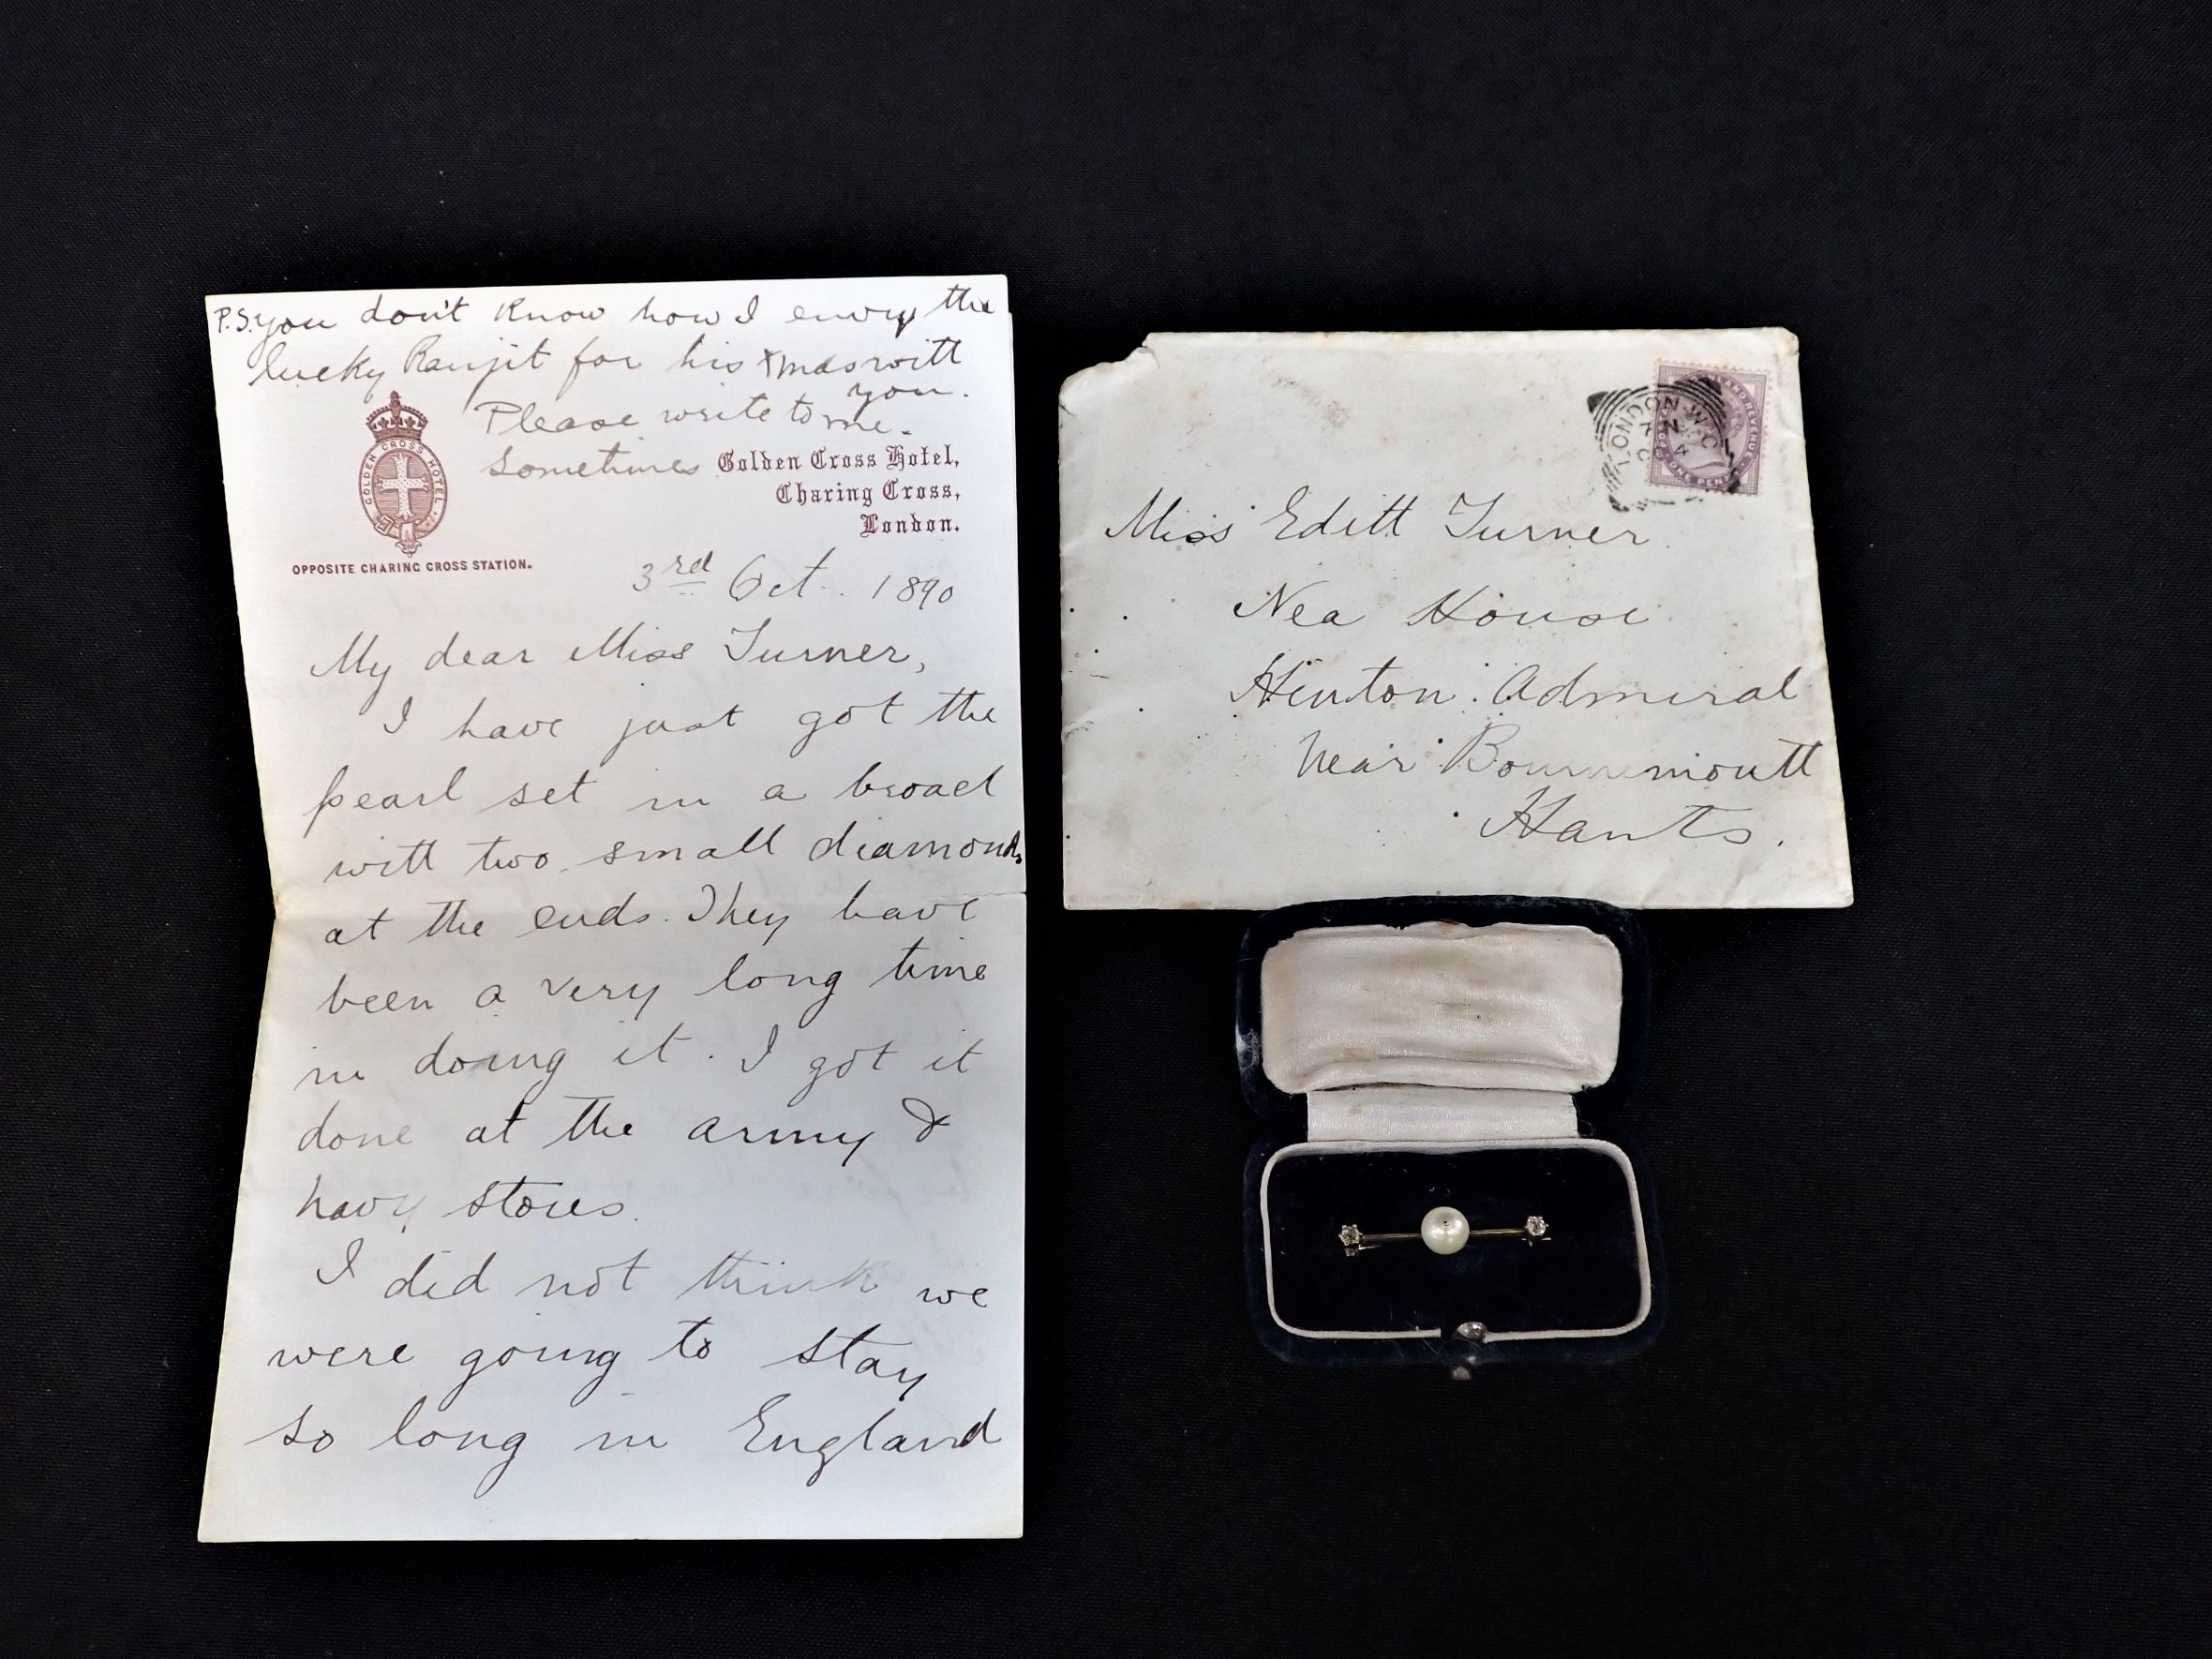 P.S. you don't know how I envy the
lucky Ranjit for his Xmas with
you.
Please write to me.
Sometimes
GOLDEN CROSS HOTEL
Golden Cross Hotel,
Charing Cross,
London.
OPPOSITE CHARING CROSS STATION.
3rd Oct. 1890
My dear Miss Turner,
I have just got the
pearl set in a broach
with two small diamonds
at the ends. They have
been a very long time
in doing it. I got it
done at the army &
navy stores.
I did not think we
were going to stay
so long in England
LONDON·W.C
Miss Edith Turner
Nea House
Hinton Admiral
Near Bournemouth
Hants.